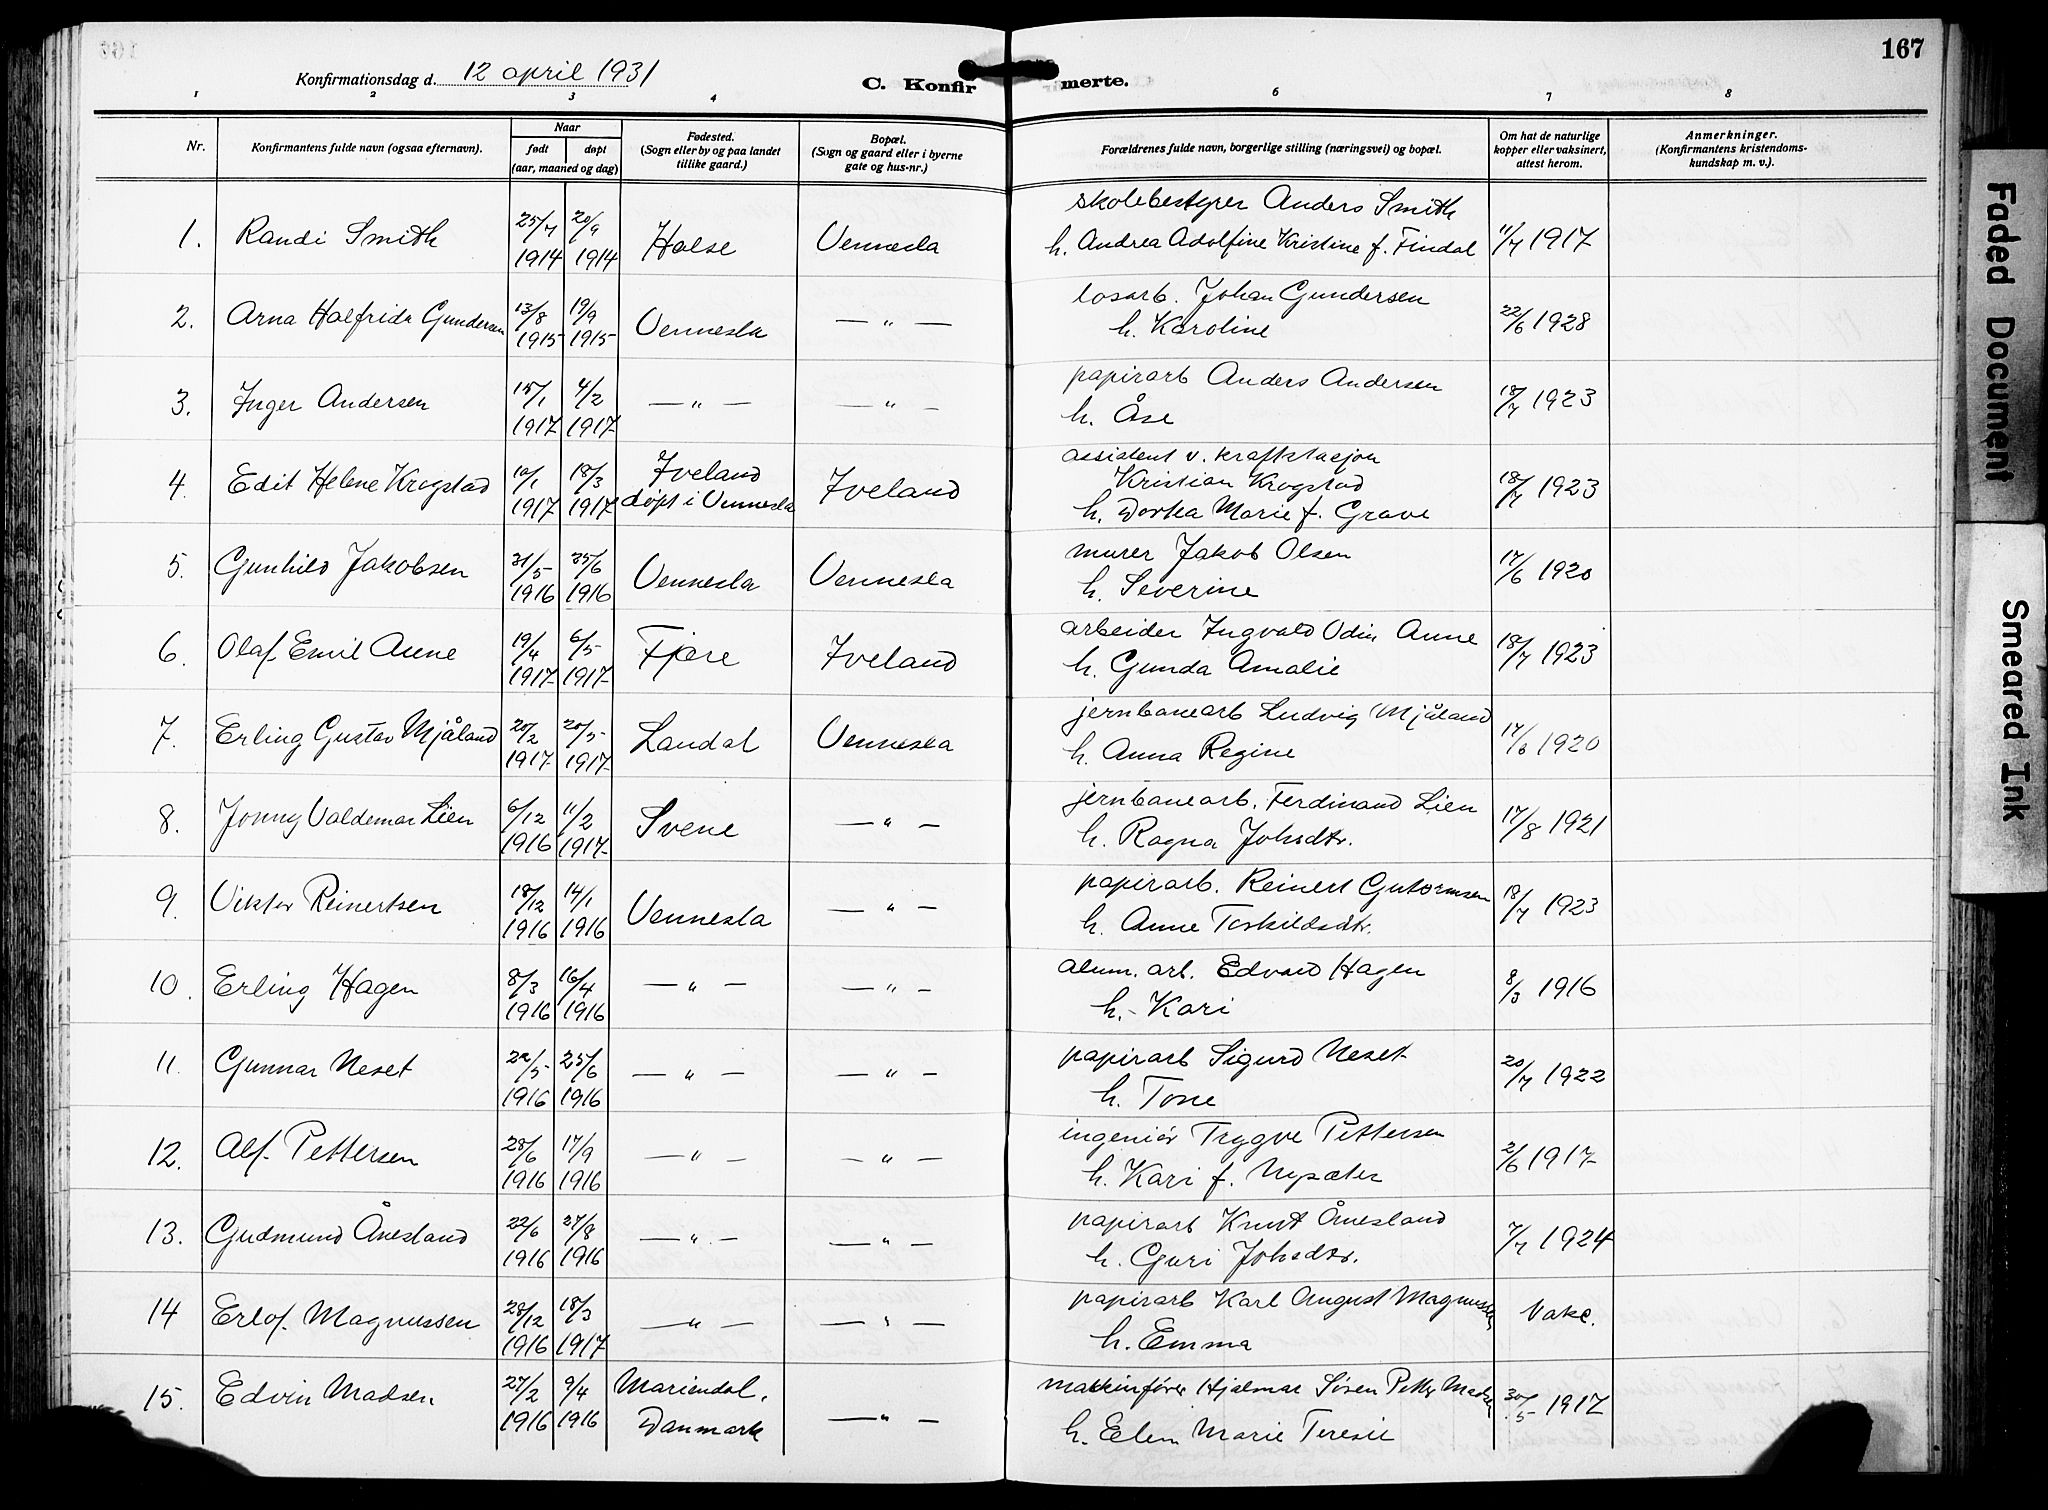 167
Konfirmationsdag d. 12 april 1931
C. Konfirmerte.
1 2 3 4 5 6 7 8
Nr.
Konfirmantens fulde navn (ogsaa efternavn).
Naar
født døpt
(aar, maaned og dag)
Fødested.
(Sogn eller by og paa landet
tillike gaard.)
Bopæl.
(Sogn og gaard eller i byerne
gate og hus-nr.)
Forældrenes fulde navn, borgerlige stilling (næringsvei) og bopæl.
Om hat de naturlige
kopper eller vaksinert,
attest herom.
Anmerkninger.
(Konfirmantens kristendoms-
kundskap m. v.).
1. Randi Smith 25/7 1914 20/9 1914 Halse Vennesla
skolebestyrer Anders Smith
h. Andrea Adolfine Kristine f. Findal 11/7 1917
2. Arna Halfrida Gundersen 13/8 1915 19/9 1915 Vennesla — " —
løsarb. Johan Gundersen
h. Karoline 22/6 1928
3. Inger Andersen 15/1 1917 4/2 1917 — " — — " —
papirarb Anders Andersen
h. Åse 18/7 1923
4. Edit Helene Krogstad 10/1 1917 18/3 1917 Iveland
døpt i Vennesla Iveland
assistent v. kraftstasjon
Kristian Krogstad
h. Dorka Marie f. Grave 18/7 1923
5. Gunhild Jakobsen 31/5 1916 25/6 1916 Vennesla Vennesla
murer Jakob Olsen
h. Severine 17/6 1920
6. Olaf Emil Aune 19/4 1917 6/5 1917 Fjære Iveland
arbeider Ingvald Odin Aune
h. Gunda Amalie 18/7 1923
7. Erling Gustav Mjåland 20/2 1917 20/5 1917 Laudal Vennesla
jernbanearb Ludvig Mjåland
h. Anna Regine 17/6 1920
8. Jonny Valdemar Lien 6/12 1916 11/2 1917 Svene — " —
jernbanearb. Ferdinand Lien
h. Ragna Johsdtr. 17/8 1921
9. Viktor Reinertsen 18/12 1916 14/1 1916 Vennesla — " —
papirarb. Reinert Gutormsen
h. Anne Torkildsdtr. 18/7 1923
10. Erling Hagen 8/3 1916 16/4 1916 — " — — " —
alum. arb. Edvard Hagen
h. Kari 8/3 1916
11. Gunnar Neset 22/5 1916 25/6 1916 — " — — " —
papirarb Sigurd Neset
h. Tone 20/7 1922
12. Alf Pettersen 28/6 1916 17/9 1916 — " — — " —
ingeniør Trygve Pettersen
h. Kari f. Nysæter 2/6 1917
13. Gudmund Ånesland 22/6 1916 27/8 1916 — " — — " —
papirarb Knut Ånesland
h. Guri Johsdtr. 7/7 1924
14 Erlof Magnussen 28/12 1916 18/3 1917 — " — — " —
papirarb Karl August Magnussen
h. Emma Vakc.
15. Edvin Madsen 27/2 1916 9/4 1916 Mariendal.
Danmark — " —
maskinfører Hjalmar Sören Petter Madsen
h. Elen Marie Teresie 30/5 1917
Faded Document
Smeared Ink